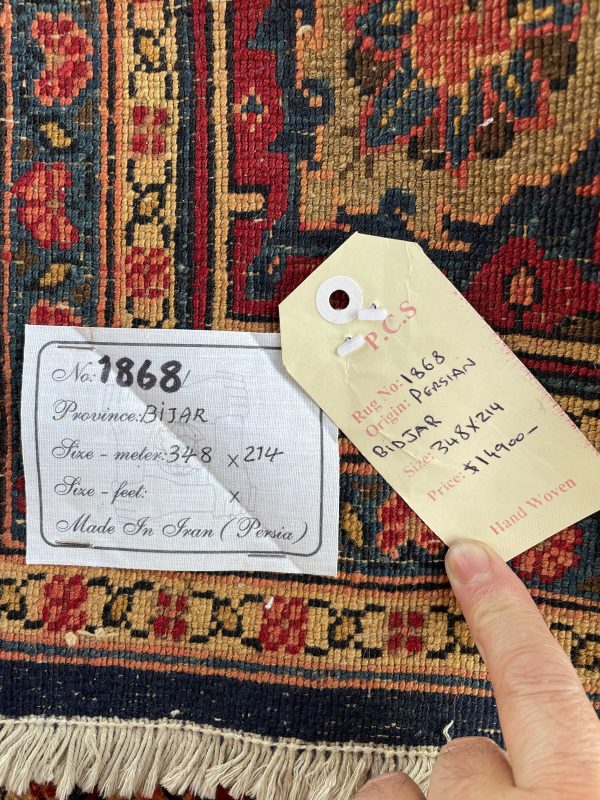 No: 1868/
Province: BIJAR
Size - meter: 348 x 214
Size - feet: x
Made In Iran (Persia)
P.C.S
Rug No: 1868
Origin: PERSIAN
BIDJAR
Size: 348X214
Price: $14900-
Hand Woven